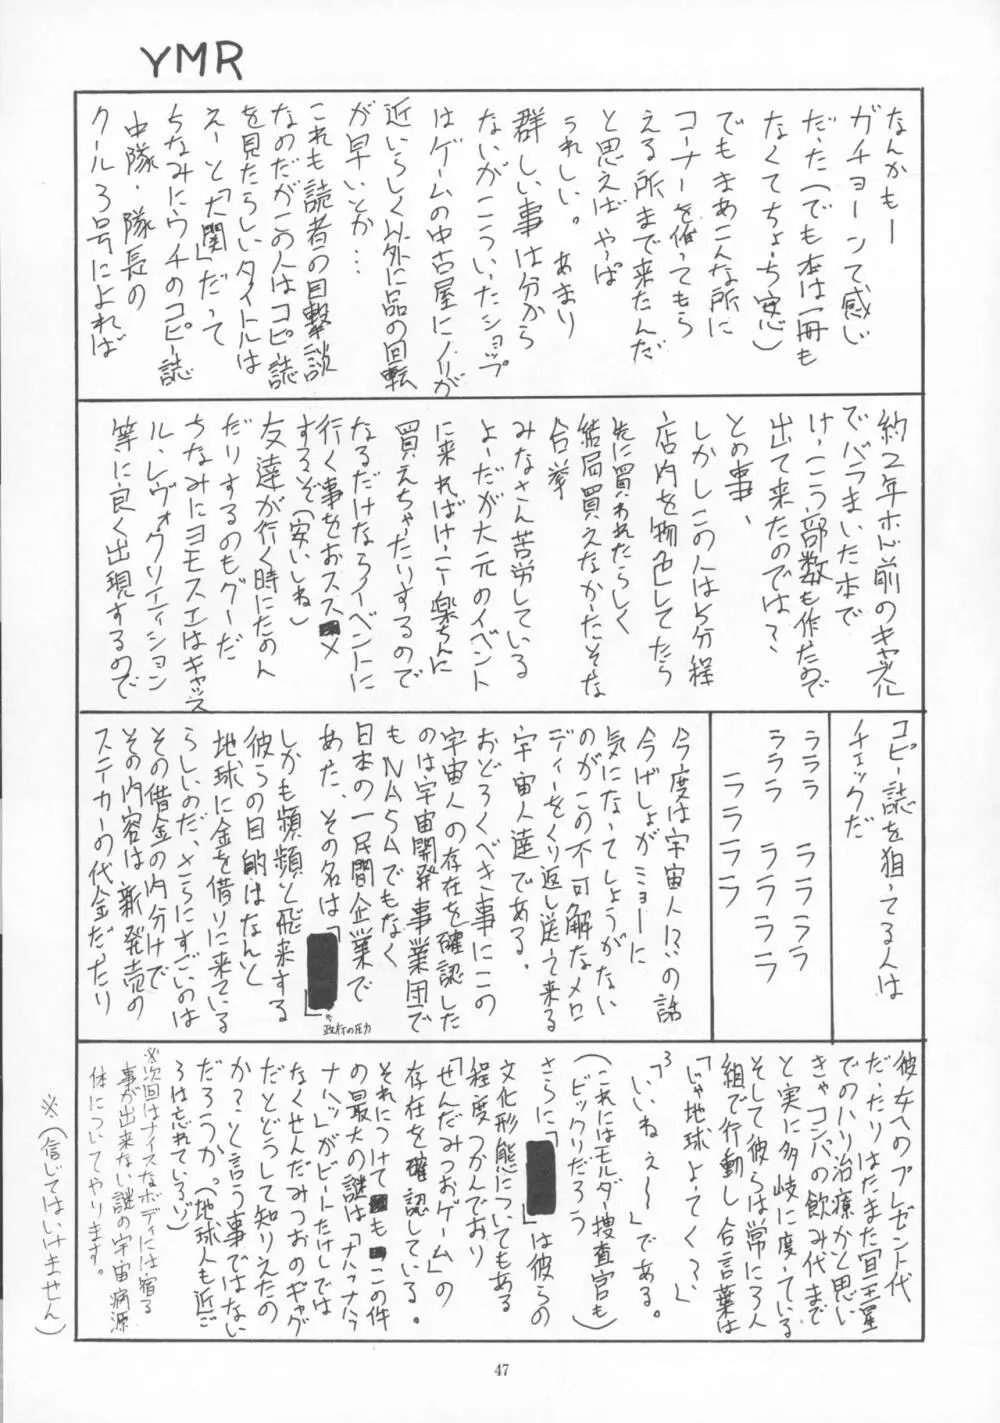 YMR
なんかもー
ガチョーンて感じ
だった(でも本は一冊も
なくてちょっち安心)
でもまあこんな所に
コーナーを作ってもら
える所まで来たんだ
と思えばやっぱ
うれしい。あまり
群しい事は分から
ないがこういったショップ
はゲームの中古屋にノリが
近いらしく以外に品の回転
が早いとか…
これも読者の目撃談
なのだがこの人はコピー誌
を見たらしいタイトルは
えーと「大関」だって
ちなみにウチのコピー誌
中隊・隊長の
クール3号によれば
約2年ホド前のキャッスル
でバラまいた本で
けっこう部数も作たので
出て来たのでは?
との事、
しかしこの人は5分程
店内を物色してたら
先に買われたらしく
結局買えなかったそな
合挙
みなさん苦労している
よーだが大元のイベント
に来ればけっこー楽ちんに
買えちゃたりするので
なるだけならイベントに
行く事をおススメ
するぞ(安いしね)
友達が行く時にたのん
だりするのもグーだ
ちなみにヨモスエはキャッス
ル、レヴォ、クリエイション
等に良く出現するので
コピー誌を狙ってる人は
チェックだ
ラララ ララララ
ラララ ララララ
ララララ
今度は宇宙人!?の話
今げしょがミョーに
気になってしょうがない
のがこの不可解なメロ
ディーをくり返し送って来る
宇宙人達である。
おどろくべき事にこの
宇宙人の存在を確認した
のは宇宙開発事業団で
もNASAでもなく
日本の一民間企業で
あた、その名は「 」
←政府の圧力
しかも頻頻と飛来する
彼らの目的はなんと
地球に金を借りに来ている
らしいのだ、さらにすごいのは
その借金の内分けで
その内容は新発売の
ステイカーの代金だったり
彼女へのプレゼント代
だったりはたまた冥王星
でのハリ治療かと思い
きゃコンパの飲み代まで
と実に多岐に度っている
そして彼らは常に3人
組で行動し合言葉は
「じゃ地球よってく?」
「3いいねぇ〜」である。
(これにはモルダー捜査官も
ビックリだろう)
さらに「 」は彼らの
文化形態についてもある
程度つかんでおり
「せんだみつおゲーム」の
存在を確認している。
それにつけても この件
の最大の謎は「ナハッナハッ
ナハッ」がビートたけしでは
なくせんだみつおのギャグ
だとどうして知りえたの
か?と言う事ではない
だろうか。(地球人も近ご
ろは忘れているゾ)
※次回はナイスなボディには宿る
事が出来ない謎の宇宙病源
体についてやります。
※(信じてはいけません)
47